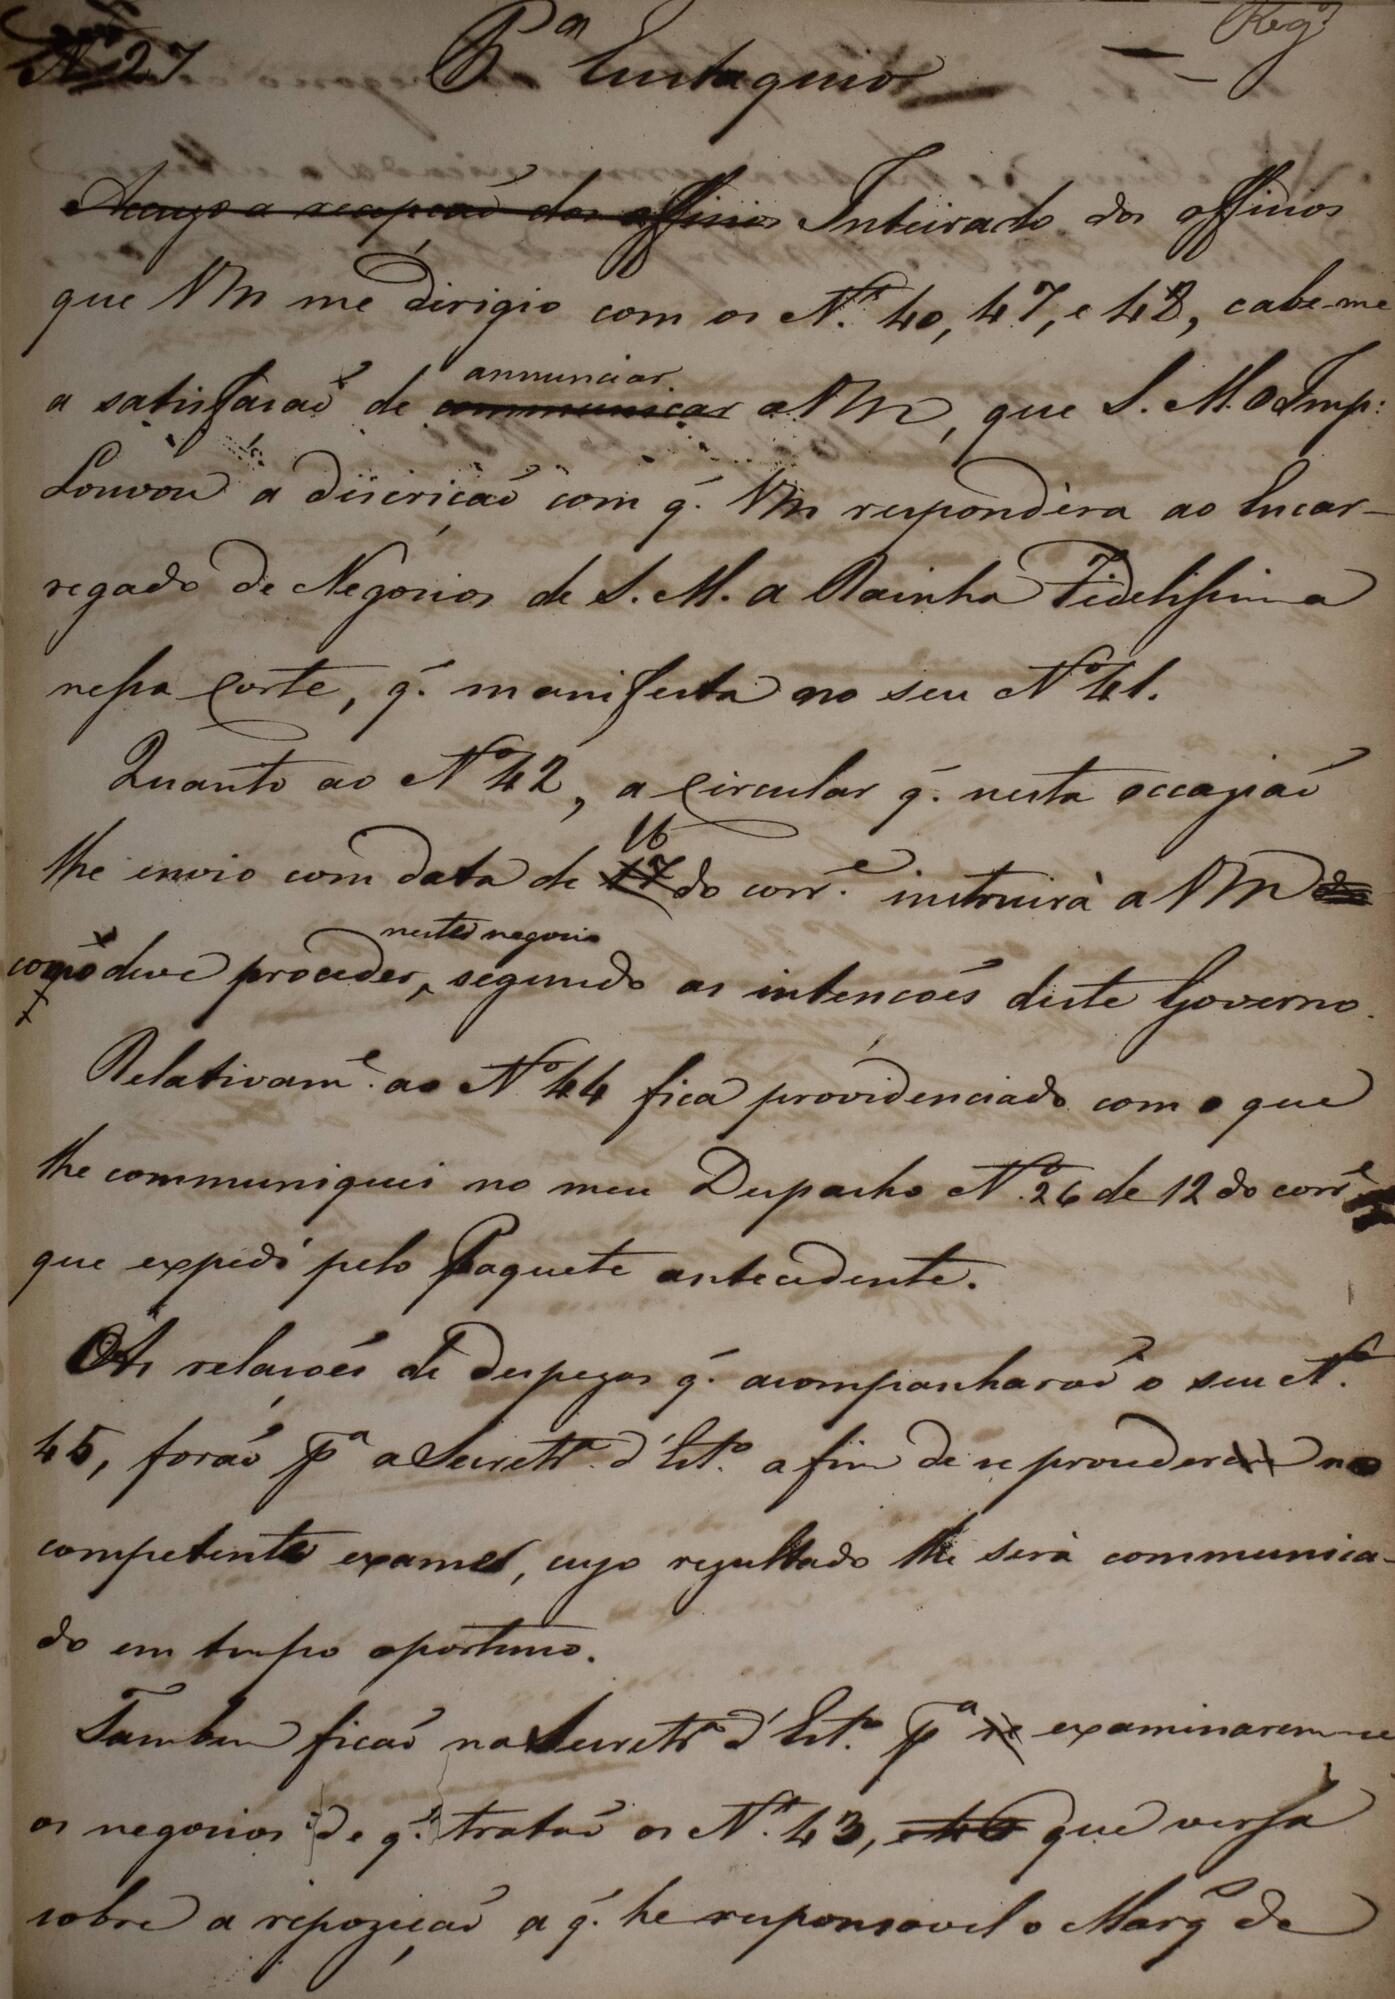 Nº 27 Pª Eustaquio Regº
Accuzo a recepçaõ dos officios Inteirado dos officios
que VM me dirigio com os N.os 40, 47, e 48, cabe-me
annunciar
a satisfaçaõ de communicar a VM, que S. M. O Imp:
Louvou a discriçaõ com q̃. VM respondèra ao Encar-
regado de Negocios de S. M. a Rainha Fidelissima
nessa Corte, q̃. manifesta no seu Nº 41.
Quanto ao Nº 42, a Circular q̃. nesta occaziaõ
16
lhe envio com data de 17 do corr.e instruirà a VM
neste negocio
como deve proceder, segundo as intençoẽs deste Governo.
Relativam.e ao Nº 44 fica providenciado com o que
lhe communiquei no meu Despacho Nº 26 de 12 do corr.e
que expedi pelo Paquete antecedente.
As relaçoẽs de despezas q̃. acompanharaõ o seu Nº
45, foraõ pª a Secretrª. d'Estº. a fim de se procederem no
competente exame, cujo rezultado lhe serà communica-
do em tempo oportuno.
Tambem ficaõ na Secretrª d'Estº. pª se examinarem-se
os negocios de q̃. trataõ os N.os 43, e 46 que versa
sobre a repoziçaõ a q̃. he responsavel o Marq̃ de